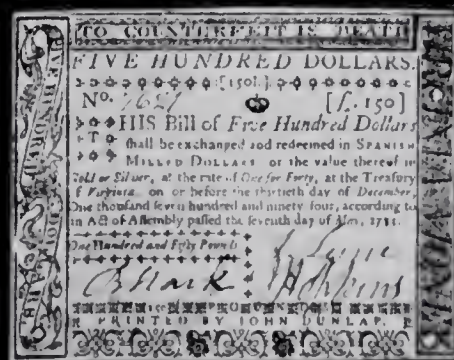 TO COUNTERFEIT IS DEATH
FIVE HUNDRED DOLLARS.
[150l.]
No. 1621 [£. 150]
THIS Bill of Five Hundred Dollars
shall be exchanged and redeemed in SPANISH
MILLED DOLLARS or the value thereof in
Gold or Silver, at the rate of One for Forty, at the Treasury
of Virginia on or before the thirtieth day of December,
One thousand seven hundred and ninety four, according to
an Act of Assembly passed the seventh day of May, 1781.
One Hundred and Fifty Pounds
B Stark J Hopkins
PRINTED BY JOHN DUNLAP.
FIVE HUNDRED DOLLARS